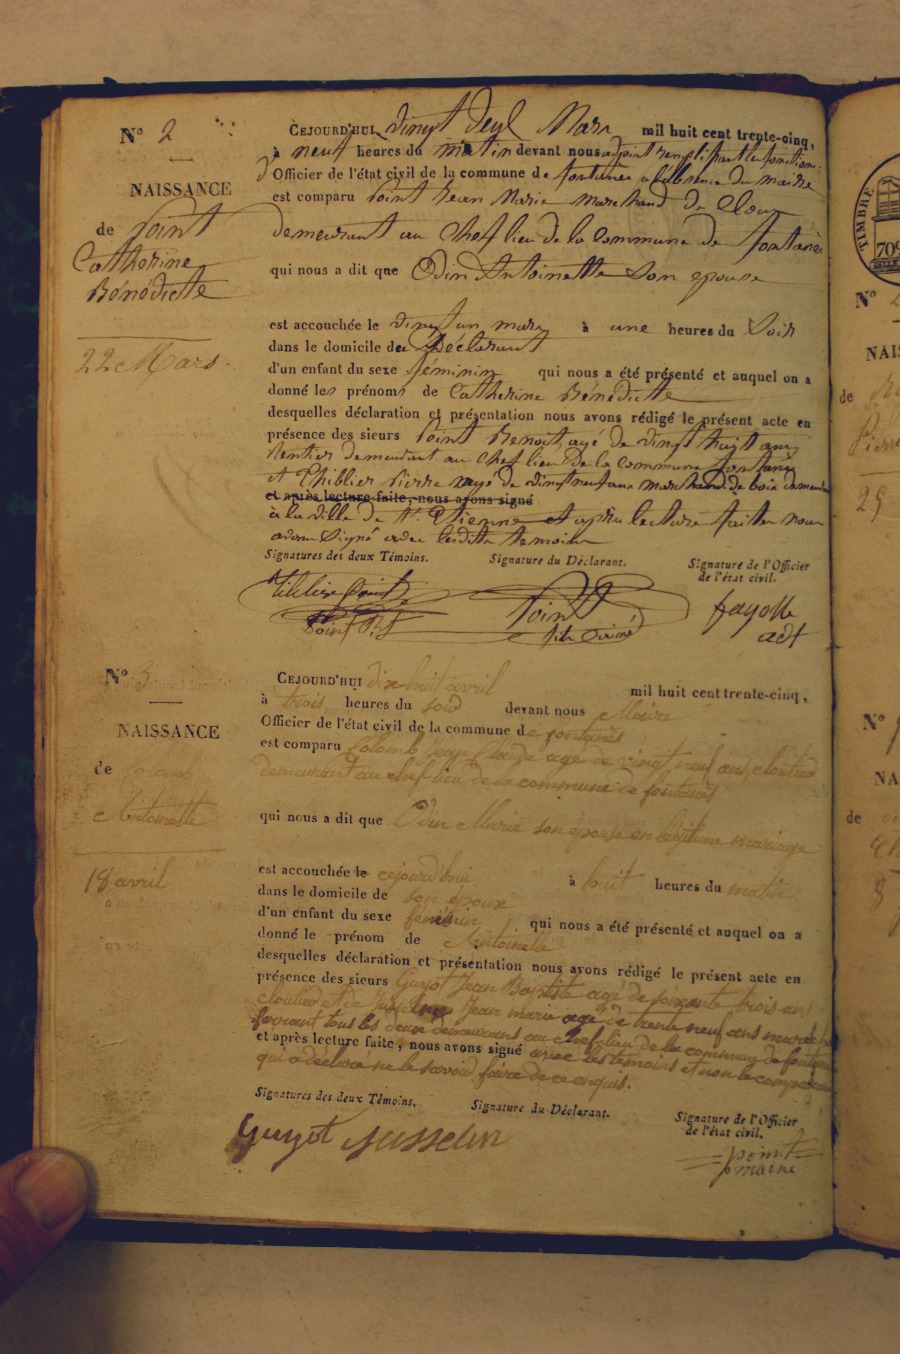 N° 2
NAISSANCE
de Point
Catherine
Bénédicte
22 Mars.
CEJOURD'HUI vingt deux Mars mil huit cent trente-cinq,
à neuf heures du matin devant nous adjoint remplissant les fonctions
d'Officier de l'état civil de la commune de fontanès a l'absence du maire
est comparu Point Jean Marie Marchand de Cloux
demeurant au Cheflieu de la Commune de fontanès
qui nous a dit que Odin Antoinette son epouse
est accouchée le vingt un mars à une heures du Soir
dans le domicile du Déclarant
d'un enfant du sexe féminin qui nous a été présenté et auquel on a
donné les prénoms de Catherine Bénédicte
desquelles déclaration et présentation nous avons rédigé le présent acte en
présence des sieurs Point Benoit, agé de vingt huit ans
Rentier demeurant au Cheflieu de la Commune fontanès
et Thiblier Pierre agé de vingt neuf ans marchand de bois demeurant
et après lecture faite, nous avons signé
à la ville de St. Etienne et après lecture faite nous
avons signé avec lesdits temoins
Signatures des deux Témoins. Signature du Déclarant. Signature de l'Officier
de l'état civil.
Point
fayolle
adt
N° 3
NAISSANCE
de Colomb
Antoinette
18 avril
CEJOURD'HUI dix-huit avril mil huit cent trente-cinq,
à trois heures du soir devant nous Maire
Officier de l'état civil de la commune de fontanès
est comparu Colomb Jean Claude age de vingt neuf ans, cloutier
demeurant au chef-lieu de la commune de fontanès
qui nous a dit que Odin Marie son epouse en légitime mariage
est accouchée le cejourd'hui à huit heures du matin
dans le domicile de son époux
d'un enfant du sexe féminin qui nous a été présenté et auquel on a
donné le prénom de Antoinette
desquelles déclaration et présentation nous avons rédigé le présent acte en
présence des sieurs Guyot Jean Baptiste agé de soixante trois ans
cloutier et de Jusselin Jean marie agé de trente neuf ans marechal
ferrant tous les deux demeurans au chef lieu de la commune de fontanès
et après lecture faite, nous avons signé avec les témoins et non le comparant
qui a déclaré ne le savoir faire de ce enquis.
Signatures des deux Témoins. Signature du Déclarant. Signature de l'Officier
de l'état civil.
Guyot Jusselin
point
maire
TIMBRE
70c
N°
NAIS
de
Pierre
25
N°
NA
de
8